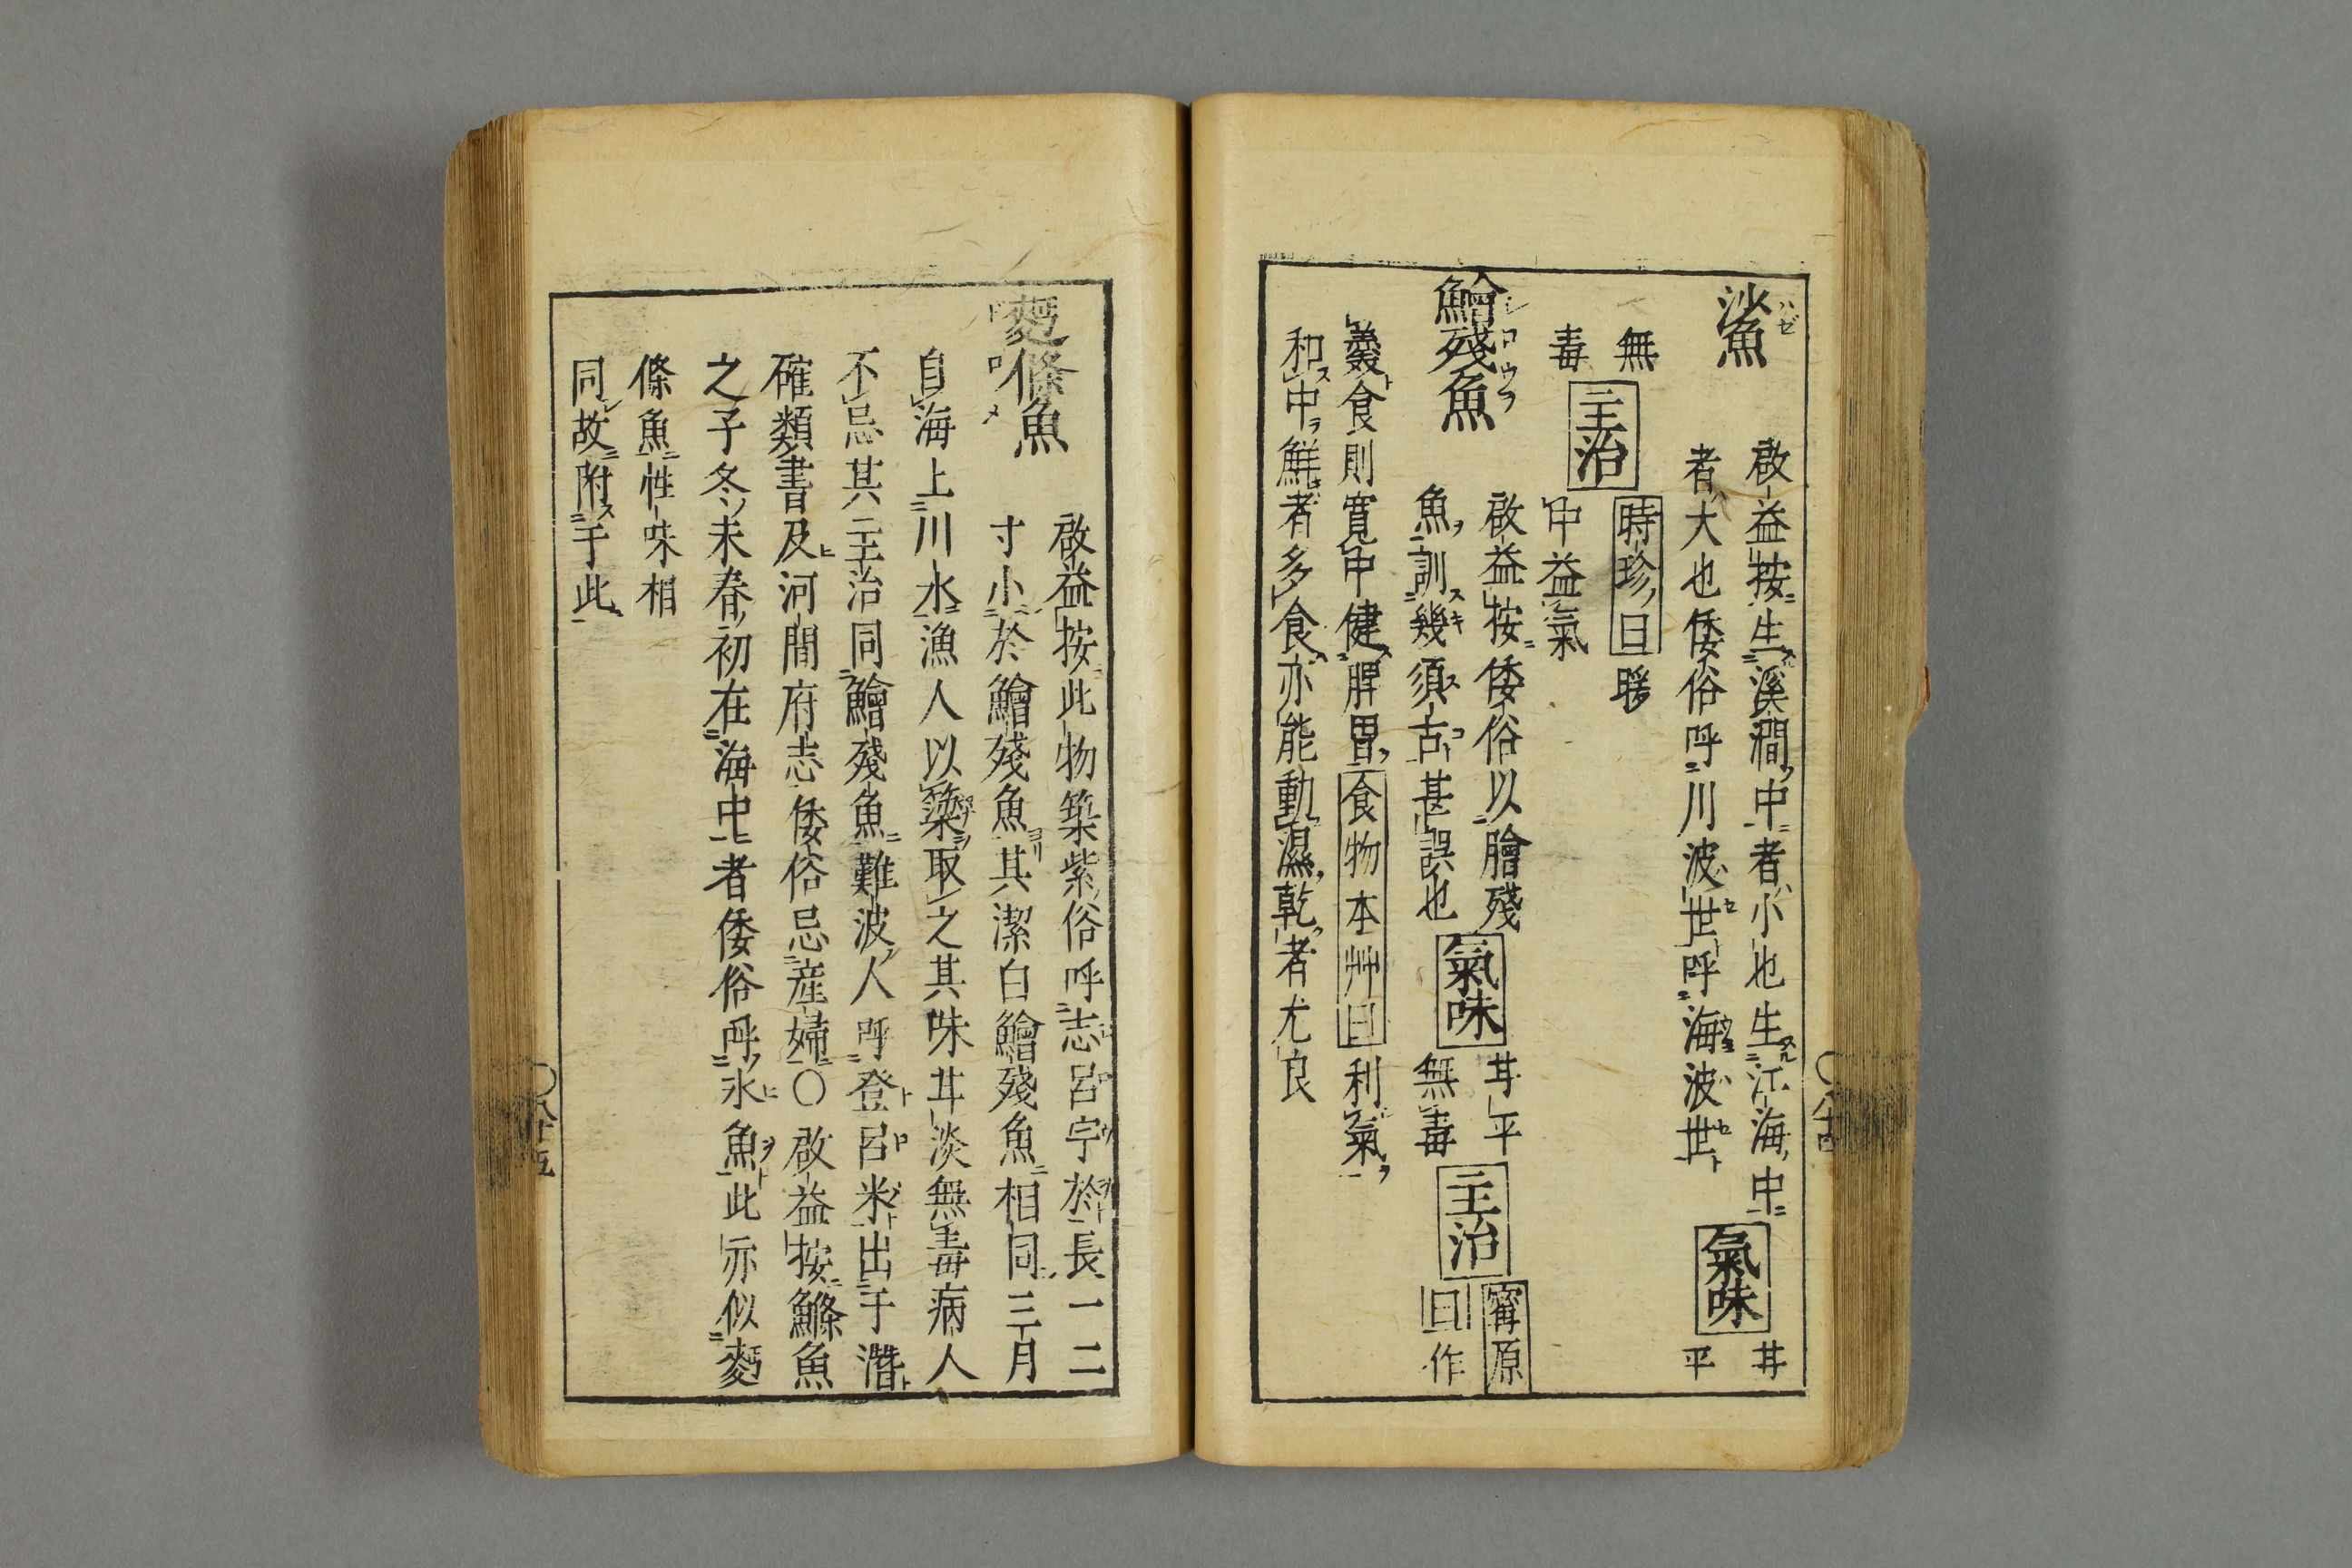 鯊
啟益按生溪澗中者小也生江海中
者大也倭俗呼川波世呼海波世
氣味
甘平
無毒
主治
時珍曰暖
中益氣
鱠殘魚
啟益按倭俗以膾殘
魚訓幾須古甚誤也
氣味
甘平
無毒
主治
甯原
曰作
羹食則寬中健脾胃食物本艸曰利氣
和中鮮者多食亦能動濕乾者尤良
麪條魚
啟益按此物築紫俗呼志呂宇於長一二
寸小於鱠殘魚其潔白鱠殘魚相同三月
自海上川水漁人以簗取之其味甘淡無毒病人
不忌其主治同鱠殘魚難波人呼登呂米出于潛
確類書及河間府志倭俗忌産婦〇啟益按鰷魚
之子冬末春初在海中者倭俗呼氷魚此亦似麪
條魚性味相
同故附于此